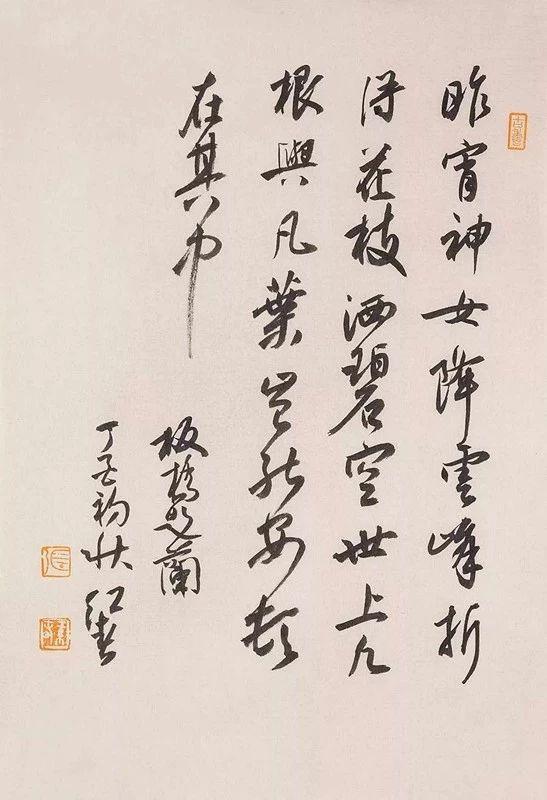 昨宵神女降雲峰折
得花枝洒碧空世上凡
根與凡葉豈能安頓
在其中
板橋題蘭
丁亥初秋